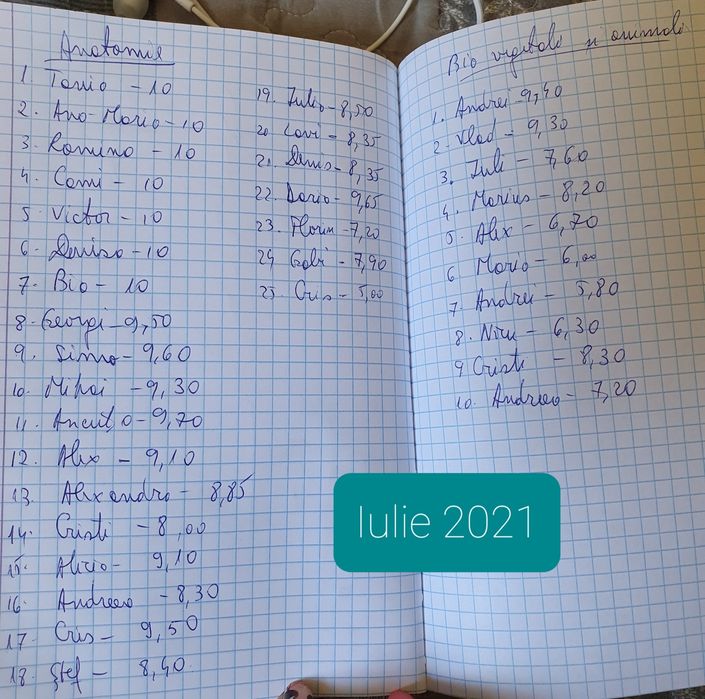 Anatomie
1. Tania - 10
2. Ana-Maria - 10
3. Romina - 10
4. Cami - 10
5. Victor - 10
6. Denisa - 10
7. Bia - 10
8. Georgi - 9,50
9. Simna - 9,60
10. Mihai - 9,30
11. Ancuța - 9,70
12. Alex - 9,10
13. Alexandra - 8,85
14. Cristi - 8,00
15. Alicia - 9,10
16. Andreea - 8,30
17. Cris - 9,50
18. Ștef - 8,40
19. Iulia - 8,50
20. Lavi - 8,35
21. Denis - 8,35
22. Daria - 9,65
23. Florin - 7,20
24. Gabi - 7,90
25. Cris - 5,00
Bio vegetală și animală
1. Andrei - 9,40
2. Vlad - 9,30
3. Iuli - 7,60
4. Marius - 8,20
5. Alex - 6,70
6. Mario - 6,00
7. Andrei - 5,80
8. Nicu - 6,30
9. Cristi - 8,30
10. Andreea - 7,20
Iulie 2021